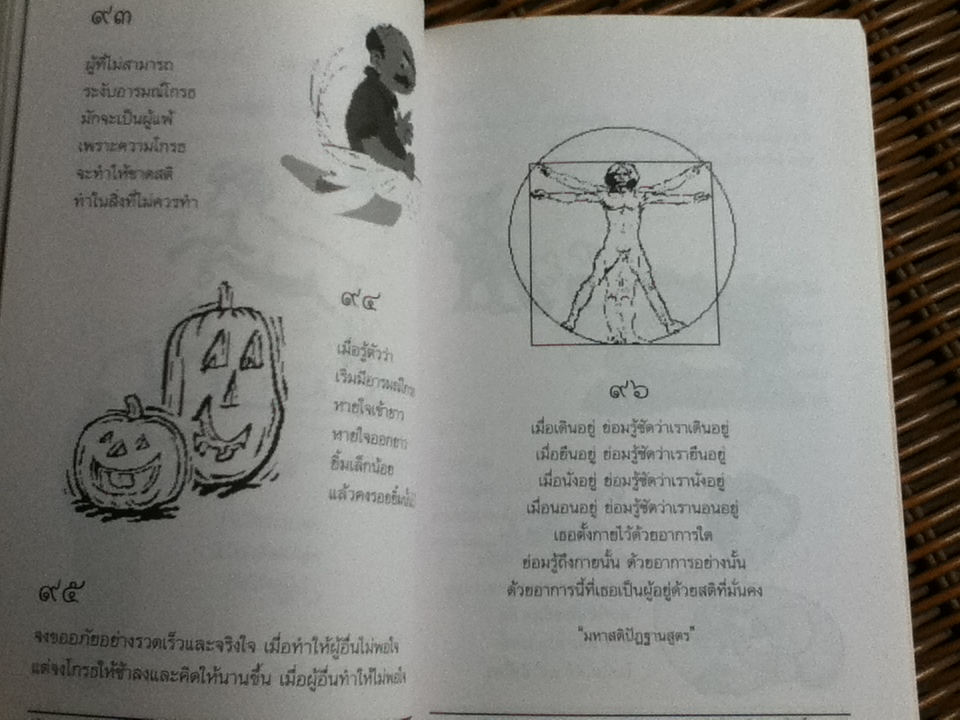 ๙๓
ผู้ที่ไม่สามารถ
ระงับอารมณ์โกรธ
มักจะเป็นผู้แพ้
เพราะความโกรธ
จะทำให้ขาดสติ
ทำในสิ่งที่ไม่ควรทำ
๙๔
เมื่อรู้ตัวว่า
เริ่มมีอารมณ์โกรธ
หายใจเข้ายาว
หายใจออกยาว
ยิ้มเล็กน้อย
แล้วคงรอยยิ้มนั้นไว้
๙๕
จงขออภัยอย่างรวดเร็วและจริงใจ เมื่อทำให้ผู้อื่นไม่พอใจ
แต่จงโกรธให้ช้าลงและคิดให้นานขึ้น เมื่อผู้อื่นทำให้ไม่พอใจ
๙๖
เมื่อเดินอยู่ ย่อมรู้ชัดว่าเราเดินอยู่
เมื่อยืนอยู่ ย่อมรู้ชัดว่าเรายืนอยู่
เมื่อนั่งอยู่ ย่อมรู้ชัดว่าเรานั่งอยู่
เมื่อนอนอยู่ ย่อมรู้ชัดว่าเรานอนอยู่
เธอตั้งกายไว้ด้วยอาการใด
ย่อมรู้ถึงกายนั้น ด้วยอาการอย่างนั้น
ด้วยอาการนี้ที่เธอเป็นผู้อยู่ด้วยสติที่มั่นคง
"มหาสติปัฏฐานสูตร"